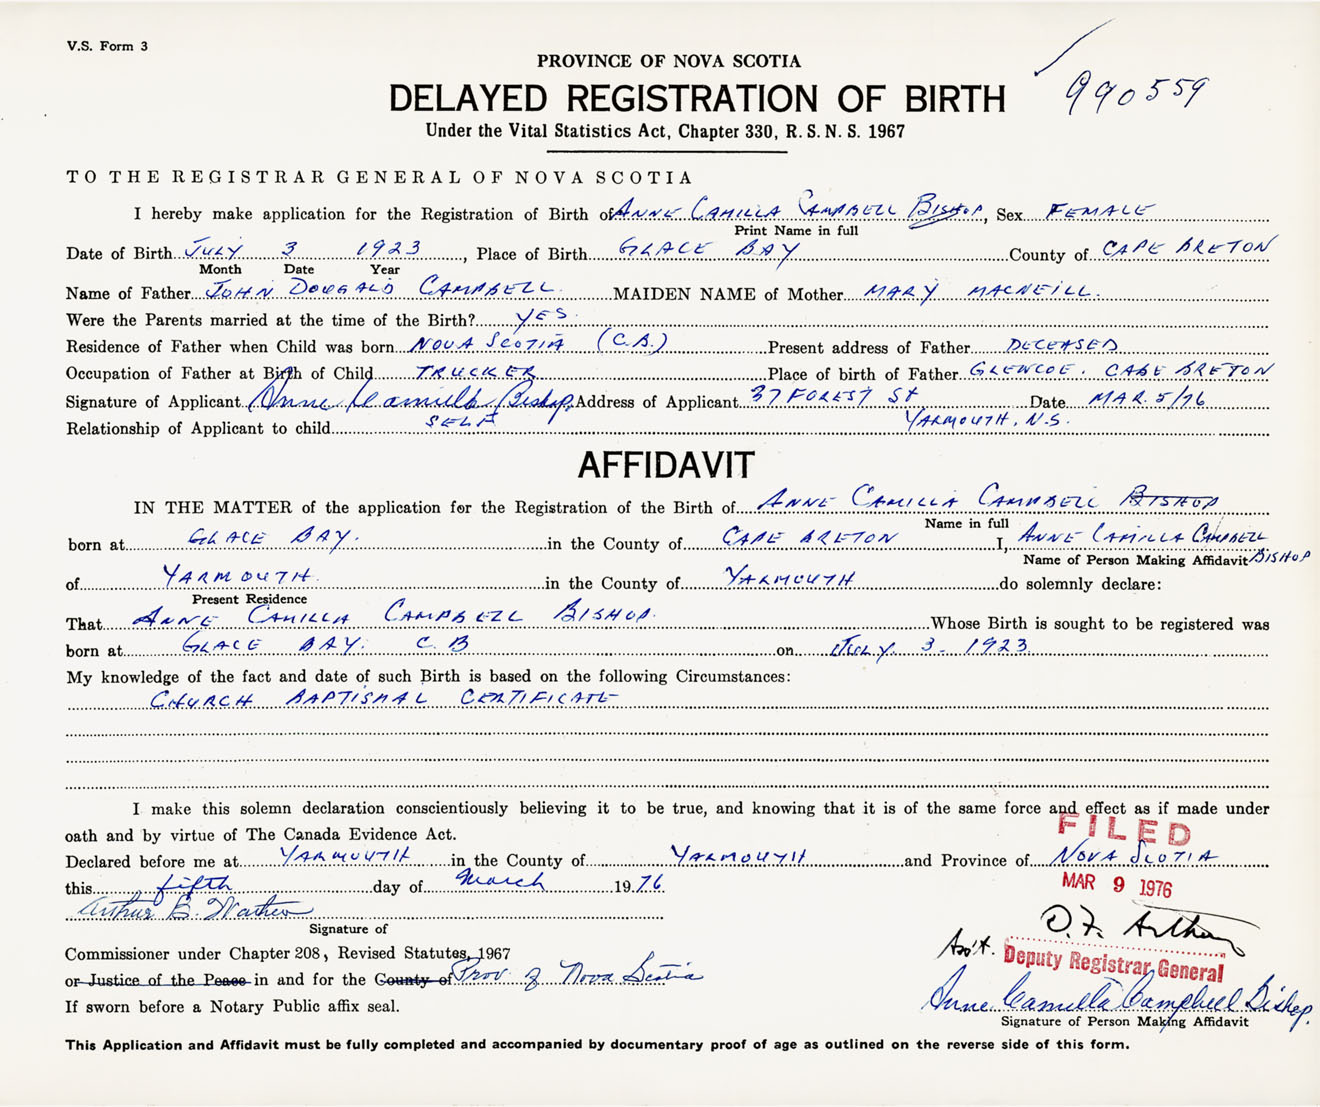 V.S. Form 3
PROVINCE OF NOVA SCOTIA
990559
DELAYED REGISTRATION OF BIRTH
Under the Vital Statistics Act, Chapter 330, R.S.N.S. 1967
TO THE REGISTRAR GENERAL OF NOVA SCOTIA
I hereby make application for the Registration of Birth of ANNE CAMILLA CAMPBELL BISHOP, Sex FEMALE
Print Name in full
Date of Birth JULY 3 1923, Place of Birth GLACE BAY County of CAPE BRETON
Month Date Year
Name of Father JOHN DOUGALD CAMPBELL MAIDEN NAME of Mother MARY MACNEILL.
Were the Parents married at the time of the Birth? YES.
Residence of Father when Child was born NOVA SCOTIA (C.B.) Present address of Father DECEASED
Occupation of Father at Birth of Child TRUCKER Place of birth of Father GLENCOE. CAPE BRETON
Signature of Applicant Anne Camilla Bishop, Address of Applicant 37 FOREST St Date MAR. 5/76
Relationship of Applicant to child SELF YARMOUTH, N.S.
AFFIDAVIT
IN THE MATTER of the application for the Registration of the Birth of ANNE CAMILLA CAMPBELL BISHOP
Name in full
born at GLACE BAY. in the County of CAPE BRETON I, ANNE CAMILLA CAMPBELL
Name of Person Making Affidavit BISHOP
of YARMOUTH. in the County of YARMOUTH do solemnly declare:
Present Residence
That ANNE CAMILLA CAMPBELL BISHOP. Whose Birth is sought to be registered was
born at GLACE BAY. C.B on JULY 3. 1923
My knowledge of the fact and date of such Birth is based on the following Circumstances:
CHURCH BAPTISMAL CERTIFICATE
I make this solemn declaration conscientiously believing it to be true, and knowing that it is of the same force and effect as if made under
oath and by virtue of The Canada Evidence Act.
FILED
Declared before me at YARMOUTH in the County of YARMOUTH and Province of NOVA SCOTIA
this fifth day of March 1976.
MAR 9 1976
Arthur B.
Signature of
D.F. Arthur
Commissioner under Chapter 208, Revised Statutes, 1967
Ass't. Deputy Registrar General
or Justice of the Peace in and for the County of Prov. of Nova Scotia
Anne Camilla Campbell Bishop.
If sworn before a Notary Public affix seal.
Signature of Person Making Affidavit
This Application and Affidavit must be fully completed and accompanied by documentary proof of age as outlined on the reverse side of this form.